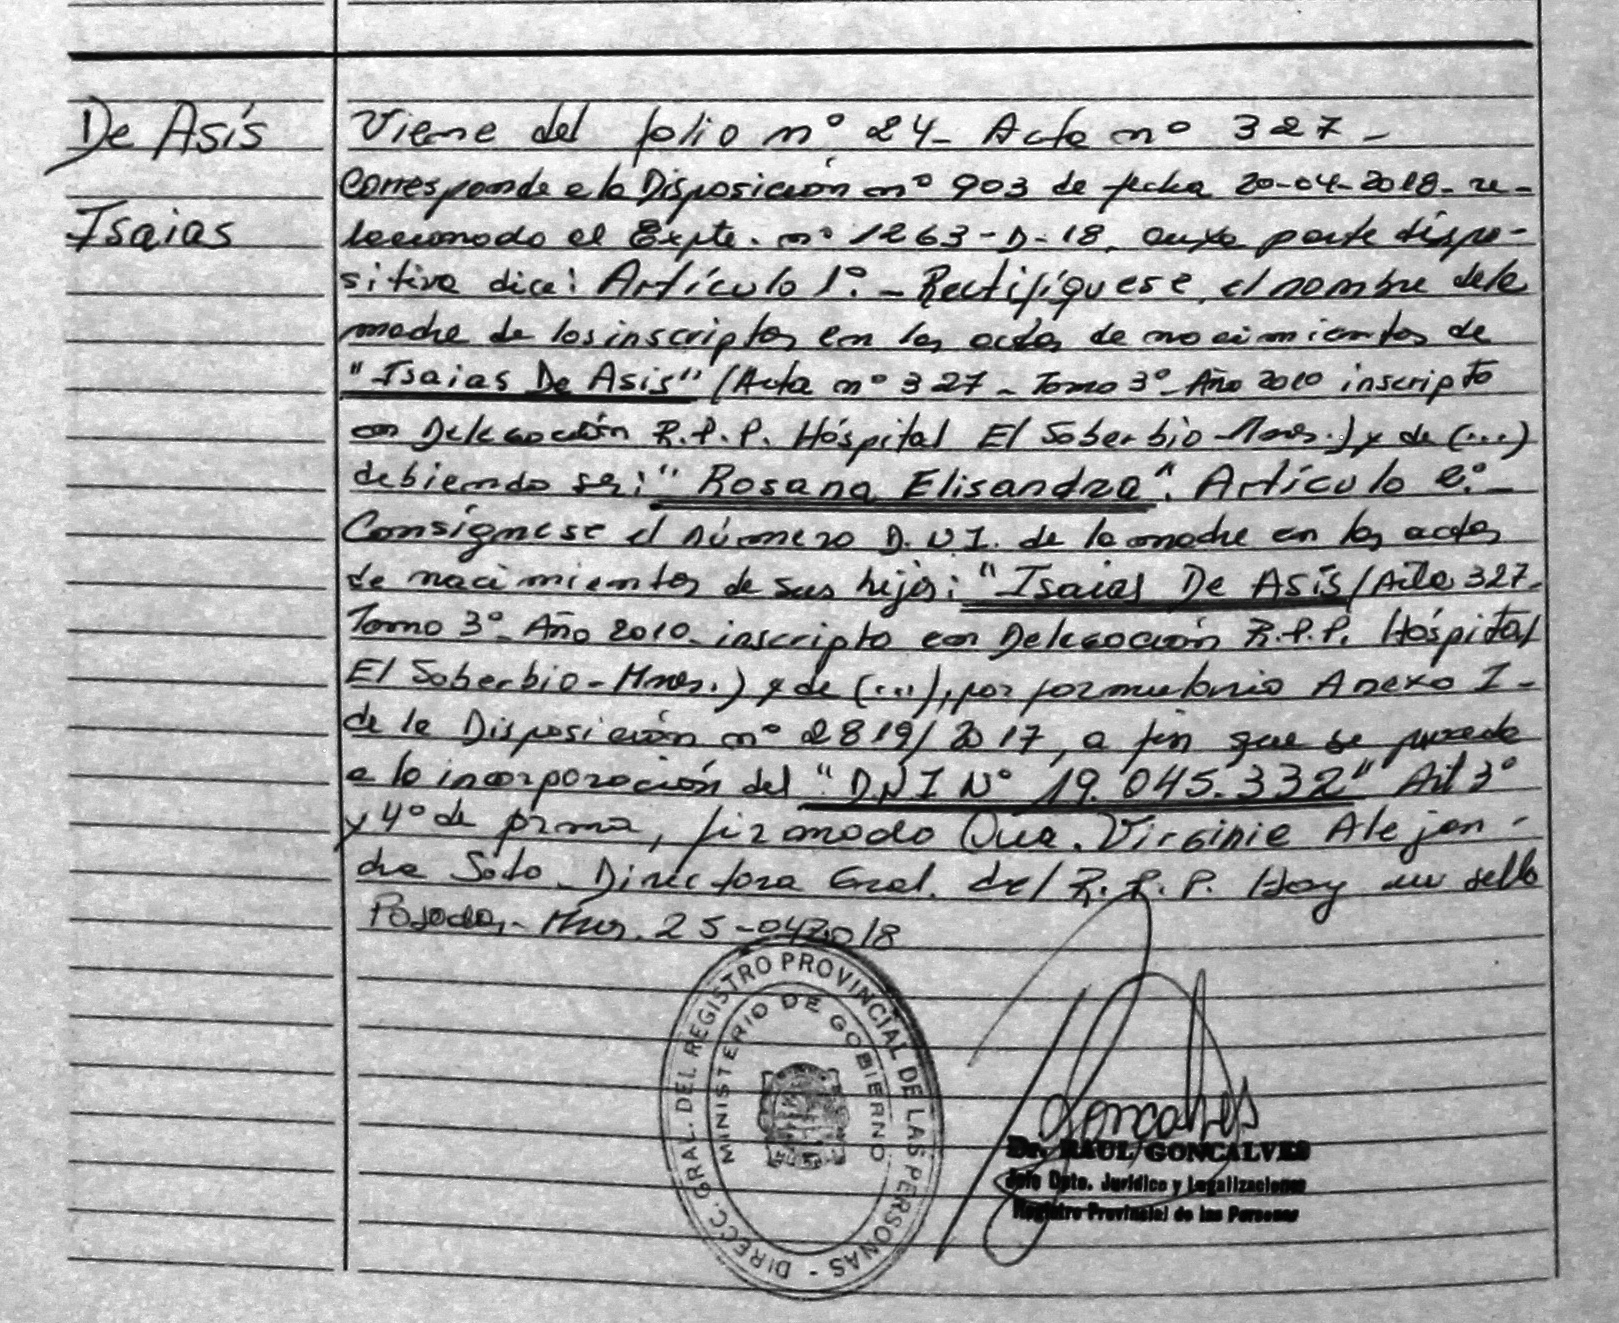 De Asís
Isaias
Viene del folio nº 24- Acta nº 327-
Corresponde a la Disposición nº 903 de fecha 20-04-2018- re-
lacionado al Expte. nº 1263-D-18, cuya parte dispo-
sitiva dice: Artículo 1º.- Rectifíquese, el nombre de la
madre de los inscriptos en las actas de nacimientos de
"Isaias De Asis" (Acta nº 327- Tomo 3º- Año 2010 inscripto
en Delegación R.P.P. Hóspital El Soberbio-Mnes.) y de (...)
debiendo ser: "Rosana Elisandra". Artículo 2º.-
Consígnese el Número D.N.I. de la madre en las actas
de nacimientos de sus hijos: "Isaias De Asís (Acta 327-
Tomo 3º- Año 2010- inscripto en Delegación R.P.P. Hóspital
El Soberbio-Mnes.) y de (...), por formulario Anexo I-
de la Disposición nº 2819/2017, a fin que se proceda
a la incorporación del "DNI Nº 19.045.332" Art 3º
y 4º de forma, firmado Dra. Virginia Alejan-
dra Soto. Directora Gral. del R.P.P. Hay un sello
Posadas- Mnes. 25-04-2018
DIRECC. GRAL. DEL REGISTRO PROVINCIAL DE LAS PERSONAS -
MINISTERIO DE GOBIERNO
Goncalves
Dr. RAUL GONCALVES
Jefe Dpto. Jurídico y Legalizaciones
Registro Provincial de las Personas